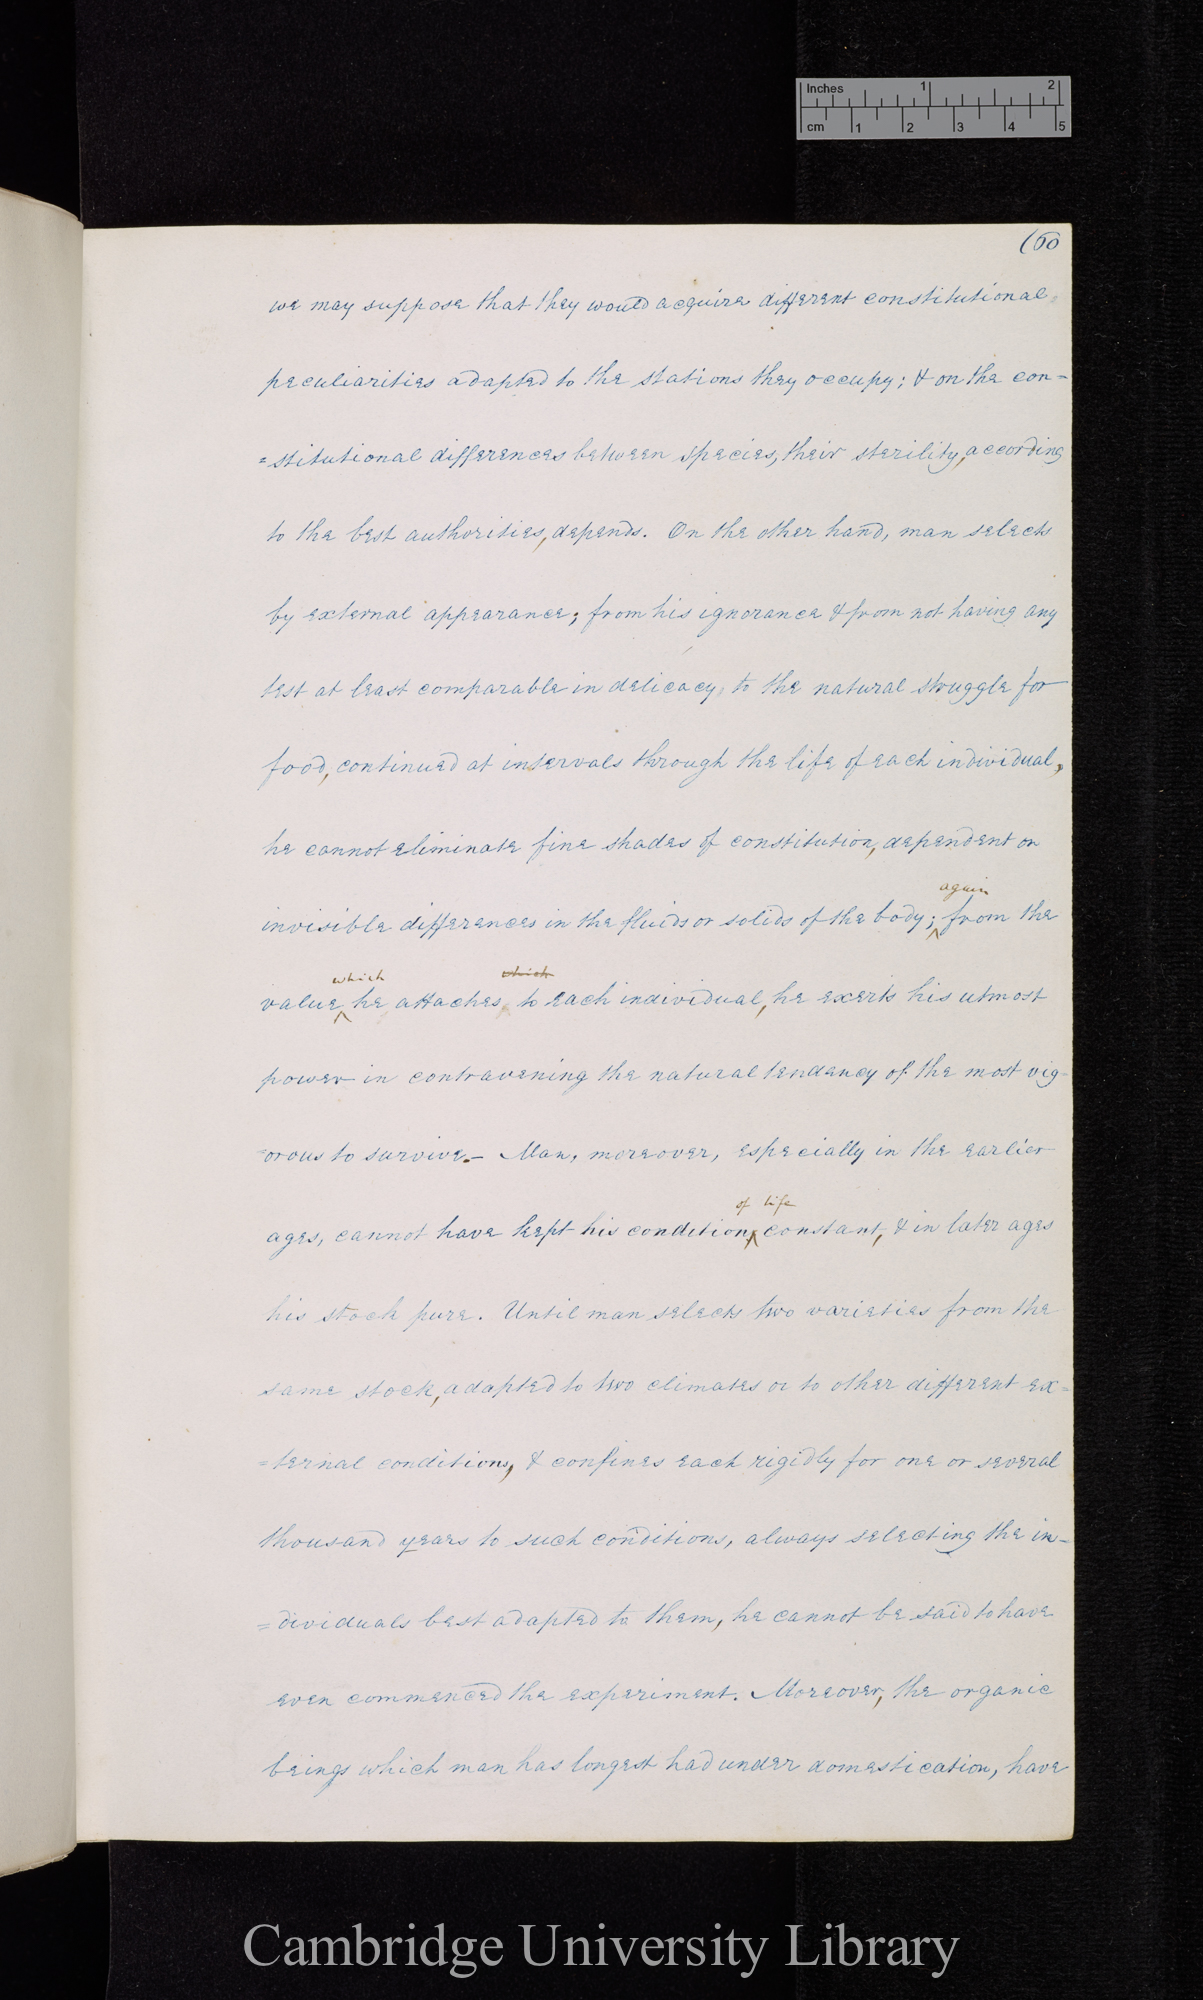 Inches 1 2
cm 1 2 3 4 5
(60
we may suppose that they would acquire different constitutional
peculiarities adapted to the stations they occupy; & on the con-
=stitutional differences between species, their sterility, according
to the best authorities, depends. On the other hand, man selects
by external appearance; from his ignorance & from not having any
test at least comparable in delicacy, to the natural struggle for
food, continued at intervals through the life of each individual,
he cannot eliminate fine shades of constitution, dependent on
again
invisible differences in the fluids or solids of the body; from the
which which
value he attaches to each individual, he exerts his utmost
power in contravening the natural tendency of the most vig-
=orous to survive.– Man, moreover, especially in the earlier
of life
ages, cannot have kept his condition, constant, & in later ages
his stock pure. Until man selects two varieties from the
same stock, adapted to two climates or to other different ex=
=ternal conditions, & confines each rigidly for one or several
thousand years to such conditions, always selecting the in-
=dividuals best adapted to them, he cannot be said to have
even commenced the experiment. Moreover, the organic
beings which man has longest had under domestication, have
Cambridge University Library